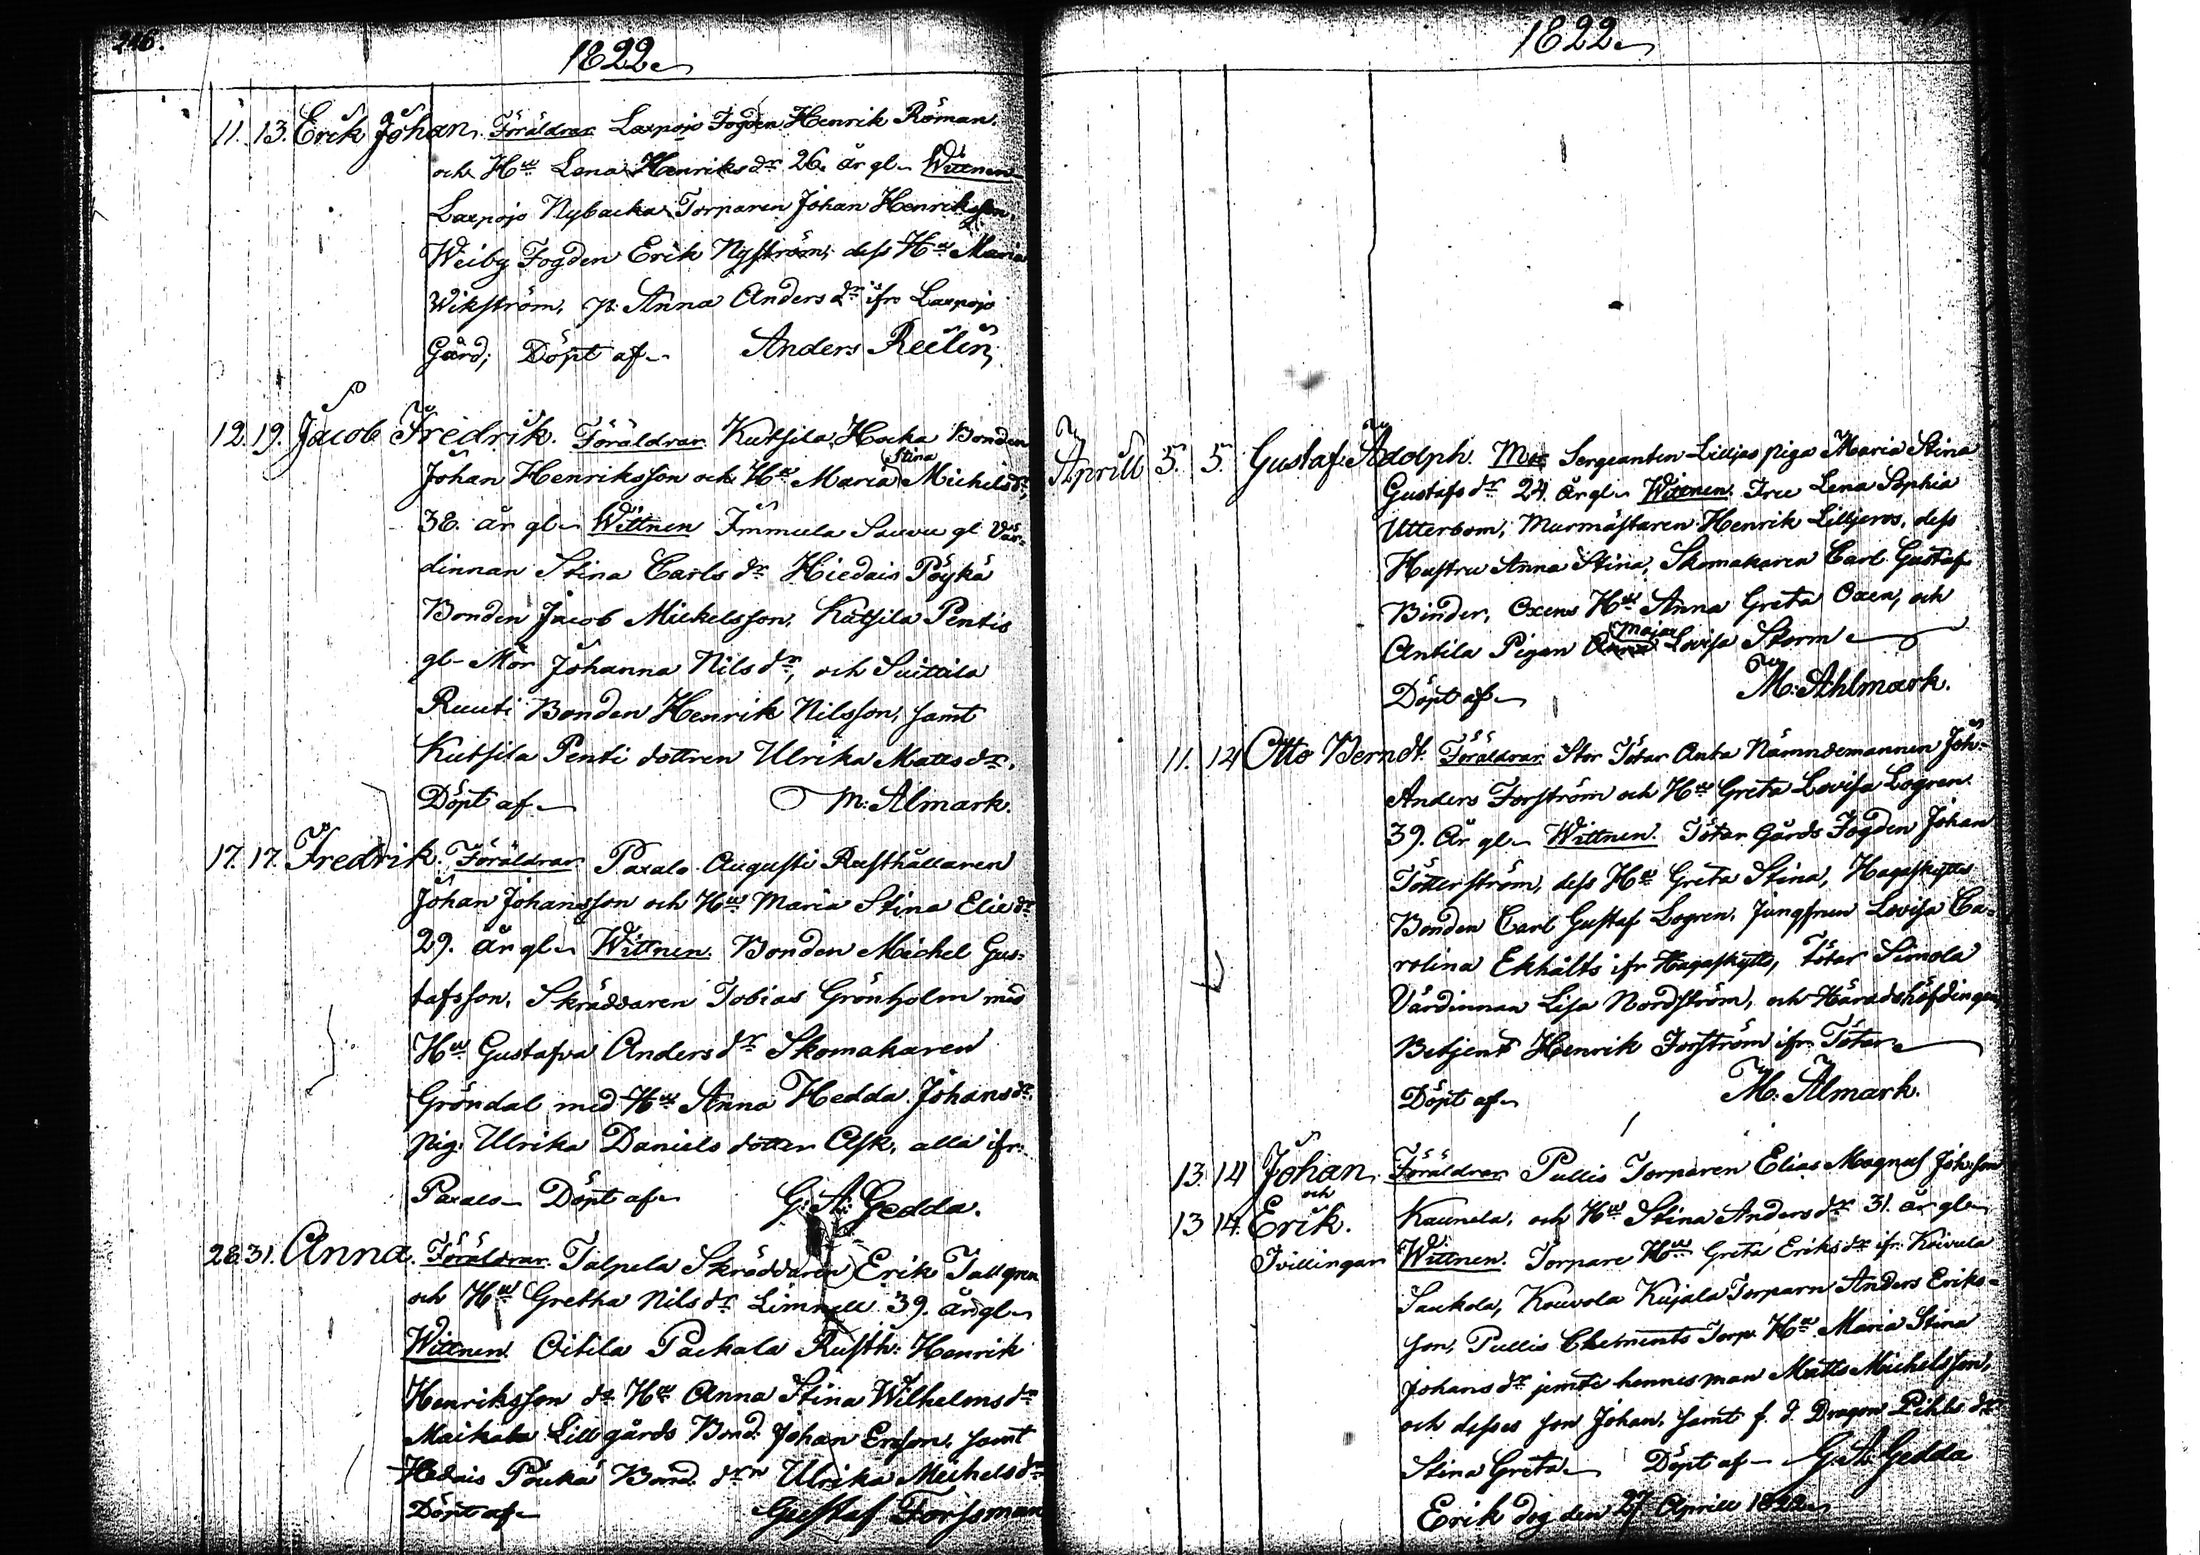 246.
1822
11. 13. Erik Johan. Föräldrar Laxpojo Fogden Henrik Röman.
och Hu Lena Henriksdr 26. år gl. Wittnen
Laxpojo Nybacka Torparen Johan Henriksson,
Weiby Fogden Erik Nyström, dess Hu Maria
Wikström, p: Anna Andersdr ifr. Laxpojo
Gård; Döpt af Anders Reilin,
12. 19. Jacob Fredrik. Föräldrar Kutsila Hocka Bonden
Johan Henriksson och Hu Maria Stina Michelsdr,
38. år gl. Wittnen Immula Sauvu gl Vär-
dinnan Stina Carlsdr Hiedais Pöykä
Bonden Jacob Mickelsson, Kutsila Pentis
gl. Mor Johanna Nilsdr, och Suittila
Ruuti Bonden Henrik Nilsson, samt
Kutsila Penti dottren Ulrika Mattsdr.
Döpt af M: Almark.
17. 17. Fredrik. Föräldrar Paxalo Augusti Rusthållaren
Johan Johansson och Hu Maria Stina Eliedr
29. år gl. Wittnen. Bonden Michel Gus-
tafsson, Skräddaren Tobias Grönholm med
Hu Gustafva Andersdr Skomakaren
Gröndal med Hu Anna Hedda Johansdr,
pig: Ulrika Daniels dotter Ask, alla ifr:
Paxalo Döpt af G: A: Gedda.
28. 31. Anna. Föräldrar Talpela Skräddaren Erik Tallgren
och Hu Gretha Nilsdr Limnell 39. år gl.
Wittnen. Oitila Packala Rusth: Henrik
Henriksson dr Hu Anna Stina Wilhelmsdr
Maikala Lillgårds Bond. Johan Ersson, samt
Hedais Pöukä Bond. drn Ulrika Michelsdr
Döpt af Gustaf Forssman
1822
Aprill 5. 5. Gustaf Adolph. Mor Sergeanten Liljas piga Maria Stina
Gustafsdr 24. år gl. Wittnen. Fru Lena Sophia
Utterbom, Murmästaren Henrik Liljeros, dess
Hustru Anna Stina, Skomakaren Carl Gustaf
Binder, Oxens Hu Anna Greta Oxen, och
Antila Pigan Maja Lovisa Storm
Döpt af M: Ahlmark.
11. 14 Otto Berndt. Föräldrar Stor Tötar Anta Nämndemannen Joh-
Anders Forström och Hu Greta Lovisa Logren.
39. År gl. Wittnen. Tötar Gårds Fogden Johan
Tötterström, dess Hu Greta Stina, Hagaskytts
Bonden Carl Gustaf Logren, Jungfrun Lovisa Ca-
rolina Ekhålts ifr Hagaskytts, Tötar Simola
Värdinnan Lisa Nordström, och Häradshöfdingens
Betjent Henrik Forström ifr. Tötar
Döpt af M: Almark.
13. 14 Johan Föräldrar Pullis Torparen Elias Magnus Johsson
och
13 14. Erik. Kaunela, och Hu Stina Andersdr 31. år gl.
Tvillingar Wittnen. Torpare Hu Greta Eriksdr ifr. Koivula
Saukola, Kouvola Kujala Torparn Anders Eriks-
son, Pullis Torp. Hu Maria Stina
Johansdr jemte hennes man Matts Michelsson,
och desses son Johan, samt f. d. Dragon Pihls dr
Stina Greta Döpt af G: A: Gedda
Erik dog den 27. Aprill 1822